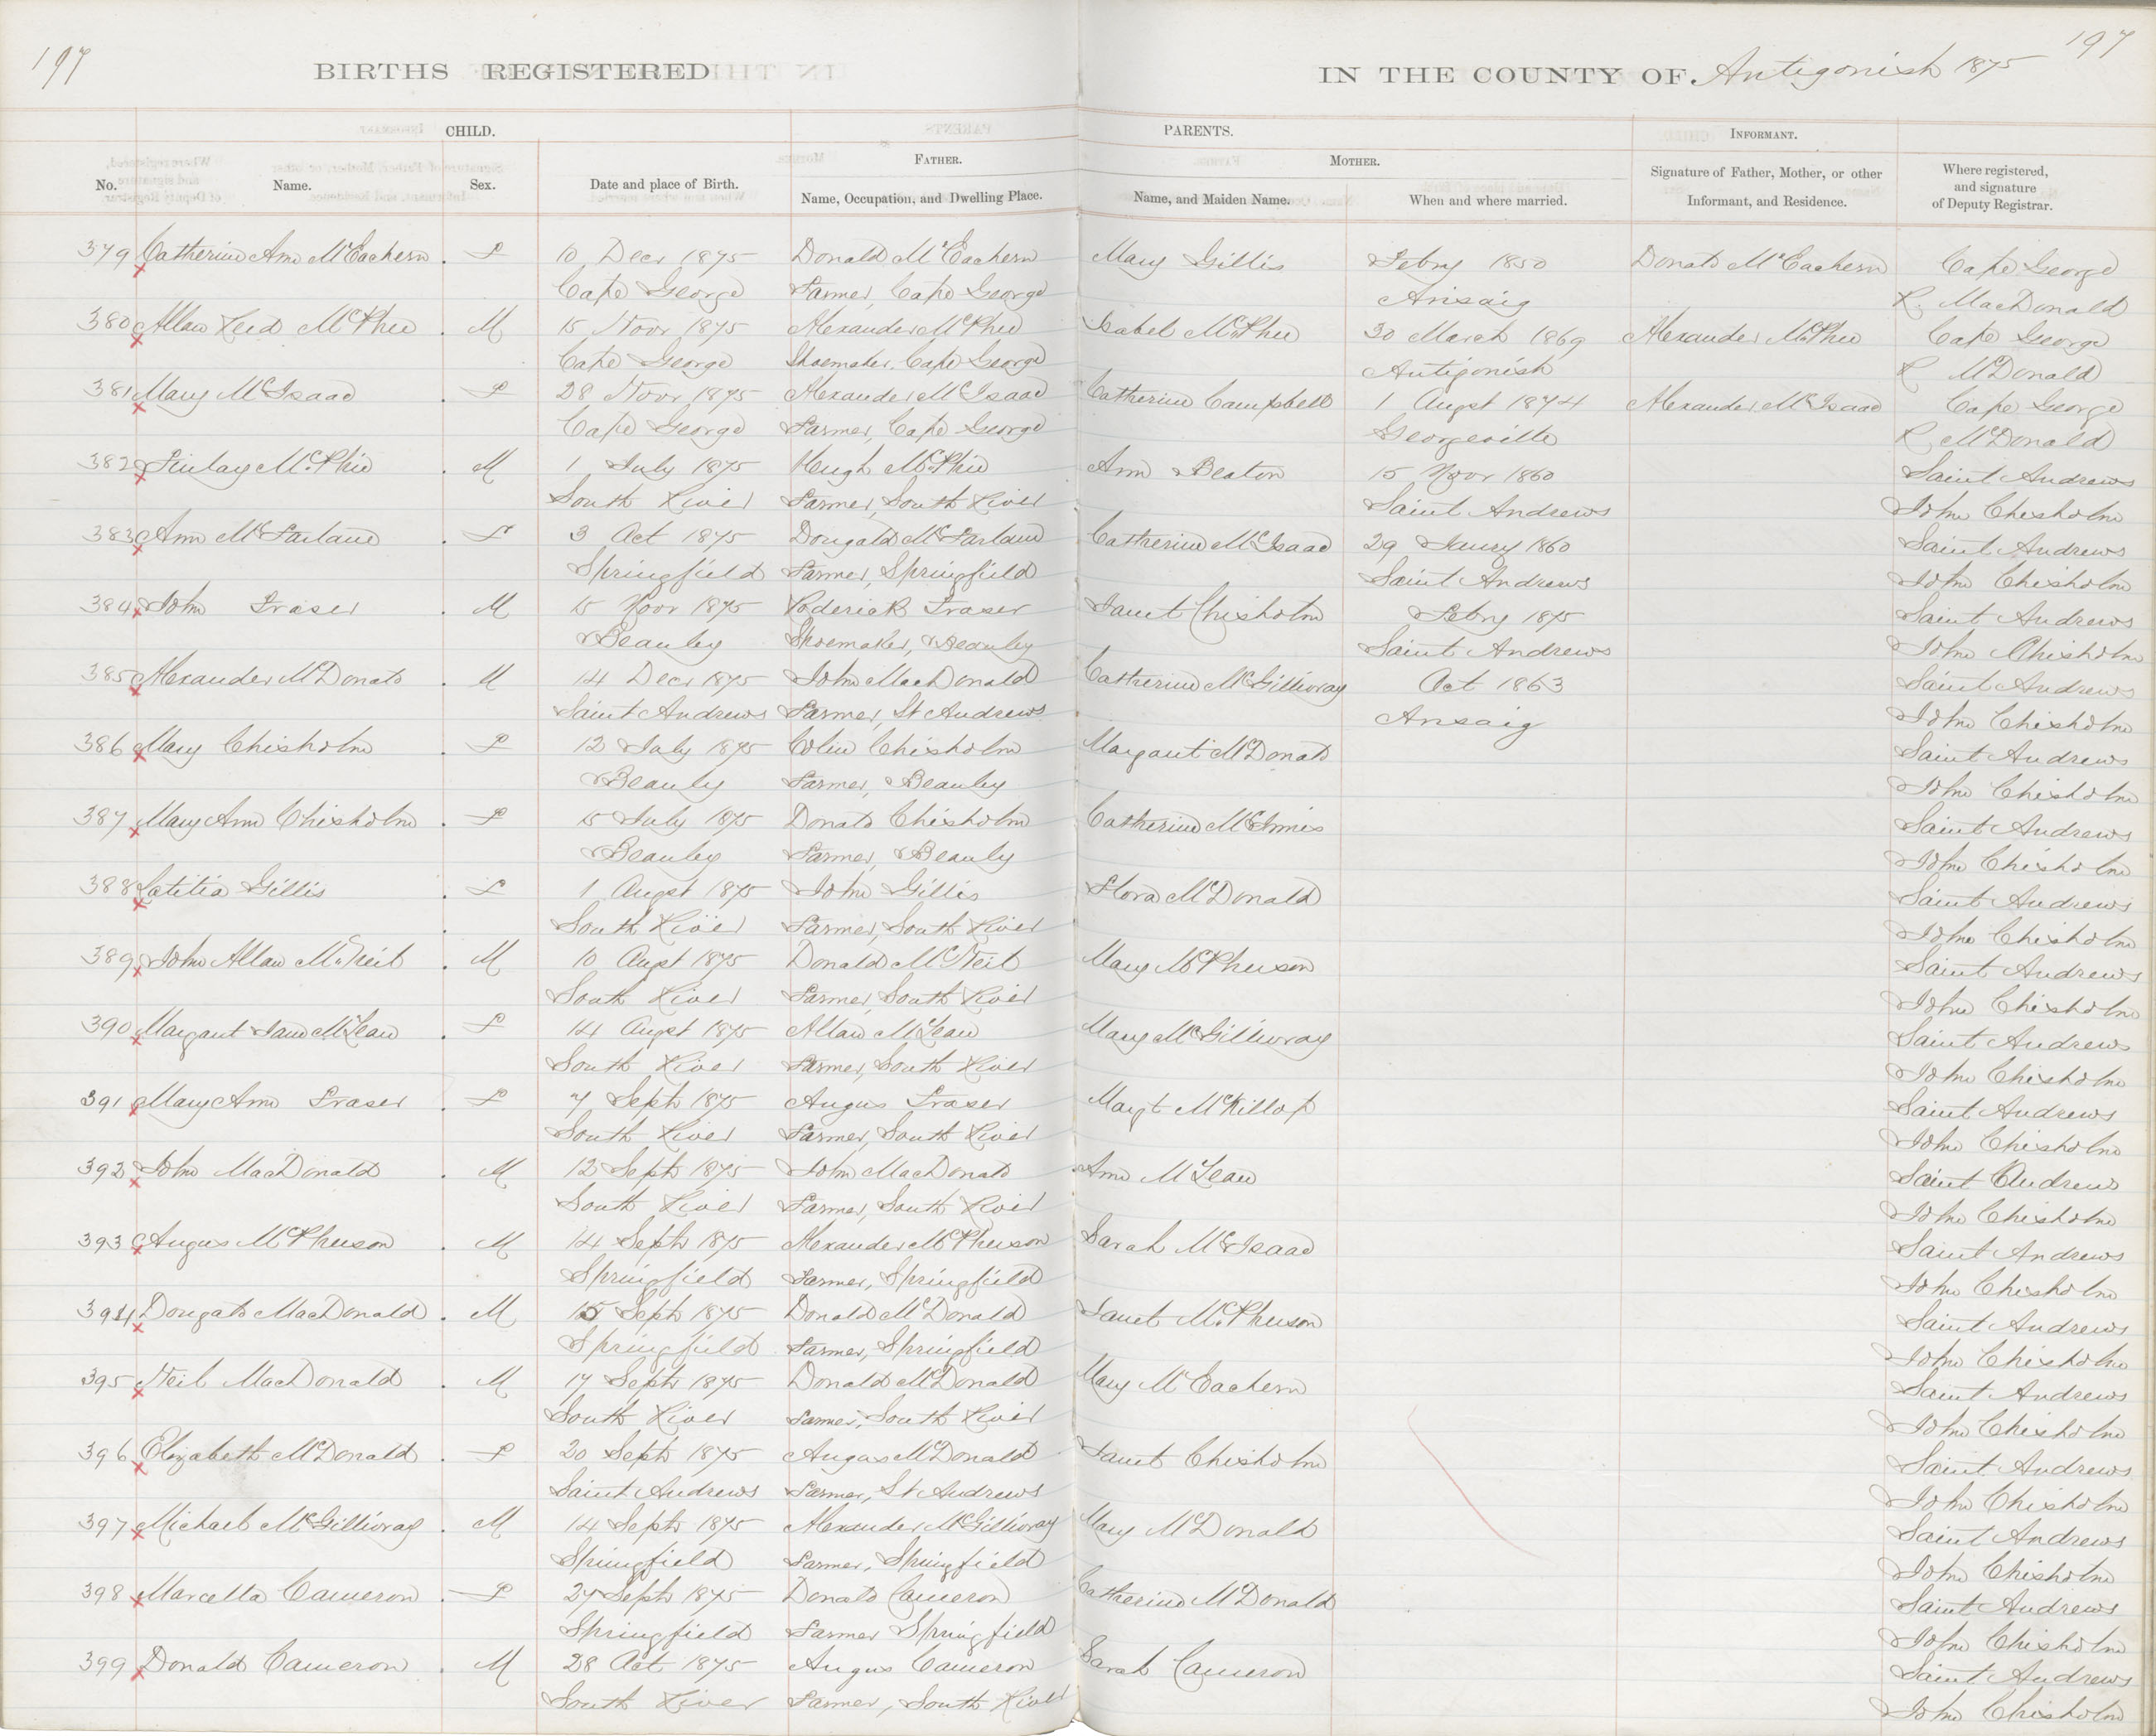 197
BIRTHS REGISTERED
IN THE COUNTY OF. Antigonish 1875
197
CHILD.
PARENTS.
INFORMANT.
No.
Name.
Sex.
Date and place of Birth.
FATHER.
Name, Occupation, and Dwelling Place.
MOTHER.
Name, and Maiden Name.
When and where married.
Signature of Father, Mother, or other
Informant, and Residence.
Where registered,
and signature
of Deputy Registrar.
379 Catherine Ann McEachern . F 10 Decr 1875 Donald McEachern Mary Gillis Febry 1850 Donald McEachern Cape George
Cape George Farmer, Cape George Arisaig R. MacDonald
380 Allan Reid McPhee . M 15 Novr 1875 Alexander McPhee Isabel McPhee 30 March 1869 Alexander McPhee Cape George
Cape George Shoemaker. Cape George Antigonish R McDonald
381 Mary McIsaac . F 28 Novr 1875 Alexander McIsaac Catherine Campbell 1 Augst 1874 Alexander McIsaac Cape George
Cape George Farmer, Cape George Georgeville R McDonald
382 Finlay McPhie . M 1 July 1875 Hugh McPhie Ann Beaton 15 Novr 1860 Saint Andrews
South River Farmer, South River Saint Andrews John Chisholm
383 Ann McFarlane . F 3 Oct 1875 Dougald McFarlane Catherine McIsaac 29 Jany 1860 Saint Andrews
Springfield Farmer, Springfield Saint Andrews John Chisholm
384 John Fraser . M 15 Novr 1875 Roderick Fraser Janet Chisholm Febry 1875 Saint Andrews
Beauley Shoemaker, Beauley Saint Andrews John Chisholm
385 Alexander McDonald . M 14 Decr 1875 John MacDonald Catherine McGillivray Oct 1863 Saint Andrews
Saint Andrews Farmer, St Andrews Arisaig John Chisholm
386 Mary Chisholm . F 12 July 1875 Colin Chisholm Margaret McDonald Saint Andrews
Beauly Farmer, Beauley John Chisholm
387 Mary Ann Chisholm . F 15 July 1875 Donald Chisholm Catherine McInnis Saint Andrews
Beauley Farmer, Beauly John Chisholm
388 Letitia Gillis . F 1 Augst 1875 John Gillis Flora McDonald Saint Andrews
South River Farmer, South River John Chisholm
389 John Allan McNeil . M 10 Augst 1875 Donald McNeil Mary McPherson Saint Andrews
South River Farmer, South River John Chisholm
390 Margaret Jane McLean . F 14 Augst 1875 Allan McLean Mary McGillivray Saint Andrews
South River Farmer, South River John Chisholm
391 Mary Ann Fraser . F 7 Sept 1875 Angus Fraser Margt McKillop Saint Andrews
South River Farmer, South River John Chisholm
392 John MacDonald . M 12 Sept 1875 John MacDonald Ann McLean Saint Andrews
South River Farmer, South River John Chisholm
393 Angus McPherson . M 14 Septr 1875 Alexander McPherson Sarah McIsaac Saint Andrews
Springfield Farmer, Springfield John Chisholm
394 Dougald MacDonald . M 15 Sept 1875 Donald McDonald Janet McPherson Saint Andrews
Springfield Farmer, Springfield John Chisholm
395 Neil MacDonald . M 17 Septr 1875 Donald McDonald Mary McEachern Saint Andrews
South River Farmer, South River John Chisholm
396 Elizabeth McDonald . F 20 Sept 1875 Angus McDonald Janet Chisholm Saint Andrews
Saint Andrews Farmer, St Andrews John Chisholm
397 Michael McGillivray . M 14 Septr 1875 Alexander McGillivray Mary McDonald Saint Andrews
Springfield Farmer, Springfield John Chisholm
398 Marcella Cameron . F 27 Septr 1875 Donald Cameron Catherine McDonald Saint Andrews
Springfield Farmer Springfield John Chisholm
399 Donald Cameron . M 28 Oct 1875 Angus Cameron Sarah Cameron Saint Andrews
South River Farmer, South River John Chisholm